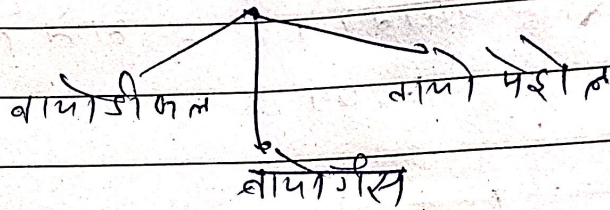 बायोडीजल बायो पेट्रोल
बायो गैस